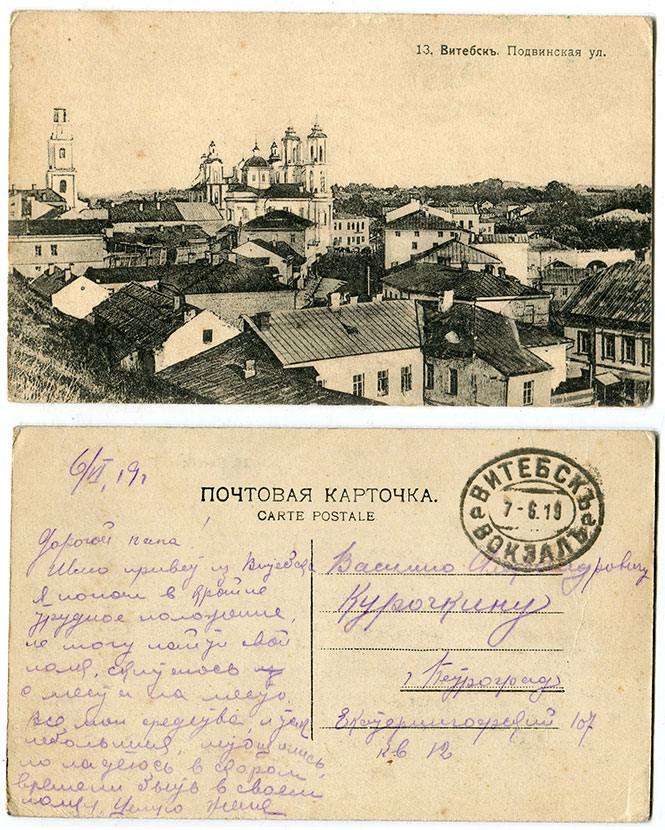 13. Витебскъ. Подвинская ул.
6/VI, 19 г
ПОЧТОВАЯ КАРТОЧКА.
CARTE POSTALE
ВИТЕБСКЪ
7-6.19
ВОКЗАЛЪ
Дорогой папа!
Шлю привет из Витебска
Я попал в крайне
трудное положение,
не могу найти свой
полк, скитаюсь
с места на место.
Все мои средства, и тем
небольшия,
но надеюсь в скором
времени быть в своем
полку. Целую Женя
Василию Александровичу
Курочкину
г. Петроград
Екатерингофский 107
кв 12